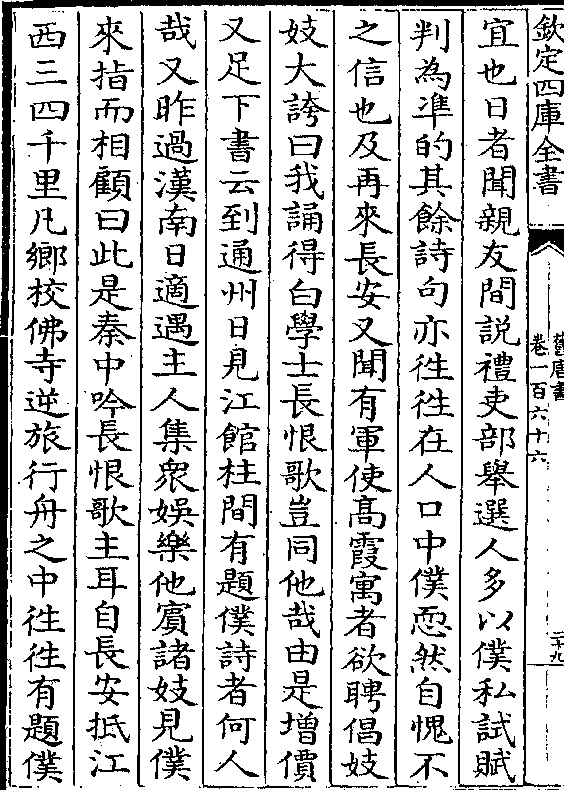 欽定四庫全書
舊唐書
卷一百六十六
二十九
宜也日者聞親友間説禮吏部舉選人多以僕私試賦
判為凖的其餘詩句亦徃徃在人口中僕恧然自愧不
之信也及再來長安又聞有軍使髙霞寓者欲聘倡妓
妓大誇曰我誦得白學士長恨歌豈同他哉由是増價
又足下書云到通州日見江館柱間有題僕詩者何人
哉又昨過漢南日適遇主人集衆娛樂他賓諸妓見僕
來指而相顧曰此是秦中吟長恨歌主耳自長安抵江
西三四千里凡鄉校佛寺逆旅行舟之中徃徃有題僕